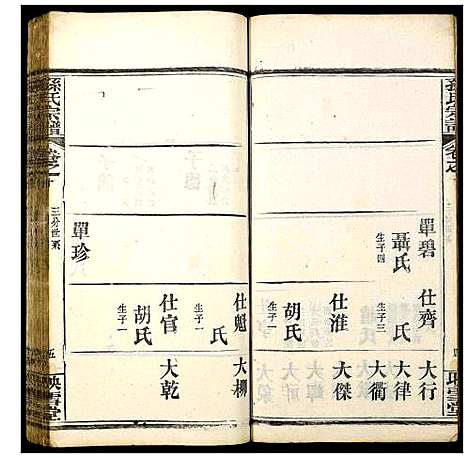 孫氏宗譜
卷之十
映雪堂
單碧
聶氏
生子四
仕齊
生子三
大行
大律
大衢
仕淮
大傑
胡氏
生子一
仕魁
氏
生子一
大柳
仕官
胡氏
生子一
大乾
單珍
孫氏宗譜
卷之十
三分世系
五
映雪堂